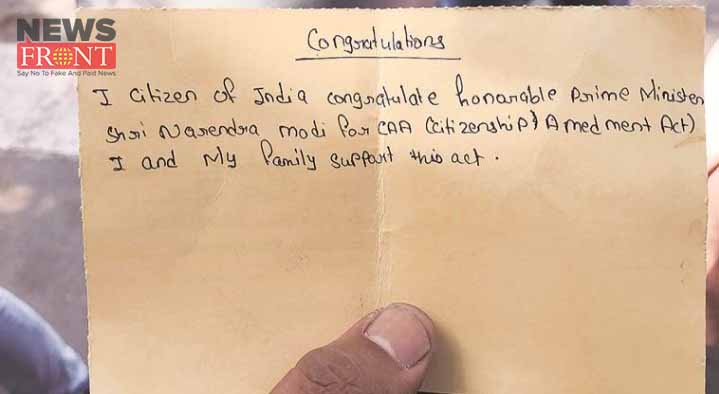 NEWS
FRONT
Say No To Fake And Paid News
Congratulations
I Citizen of India congratulate honarable Prime Minister
Shri Narendra modi for CAA (Citizenship) Amedment Act)
I and My family support this act.